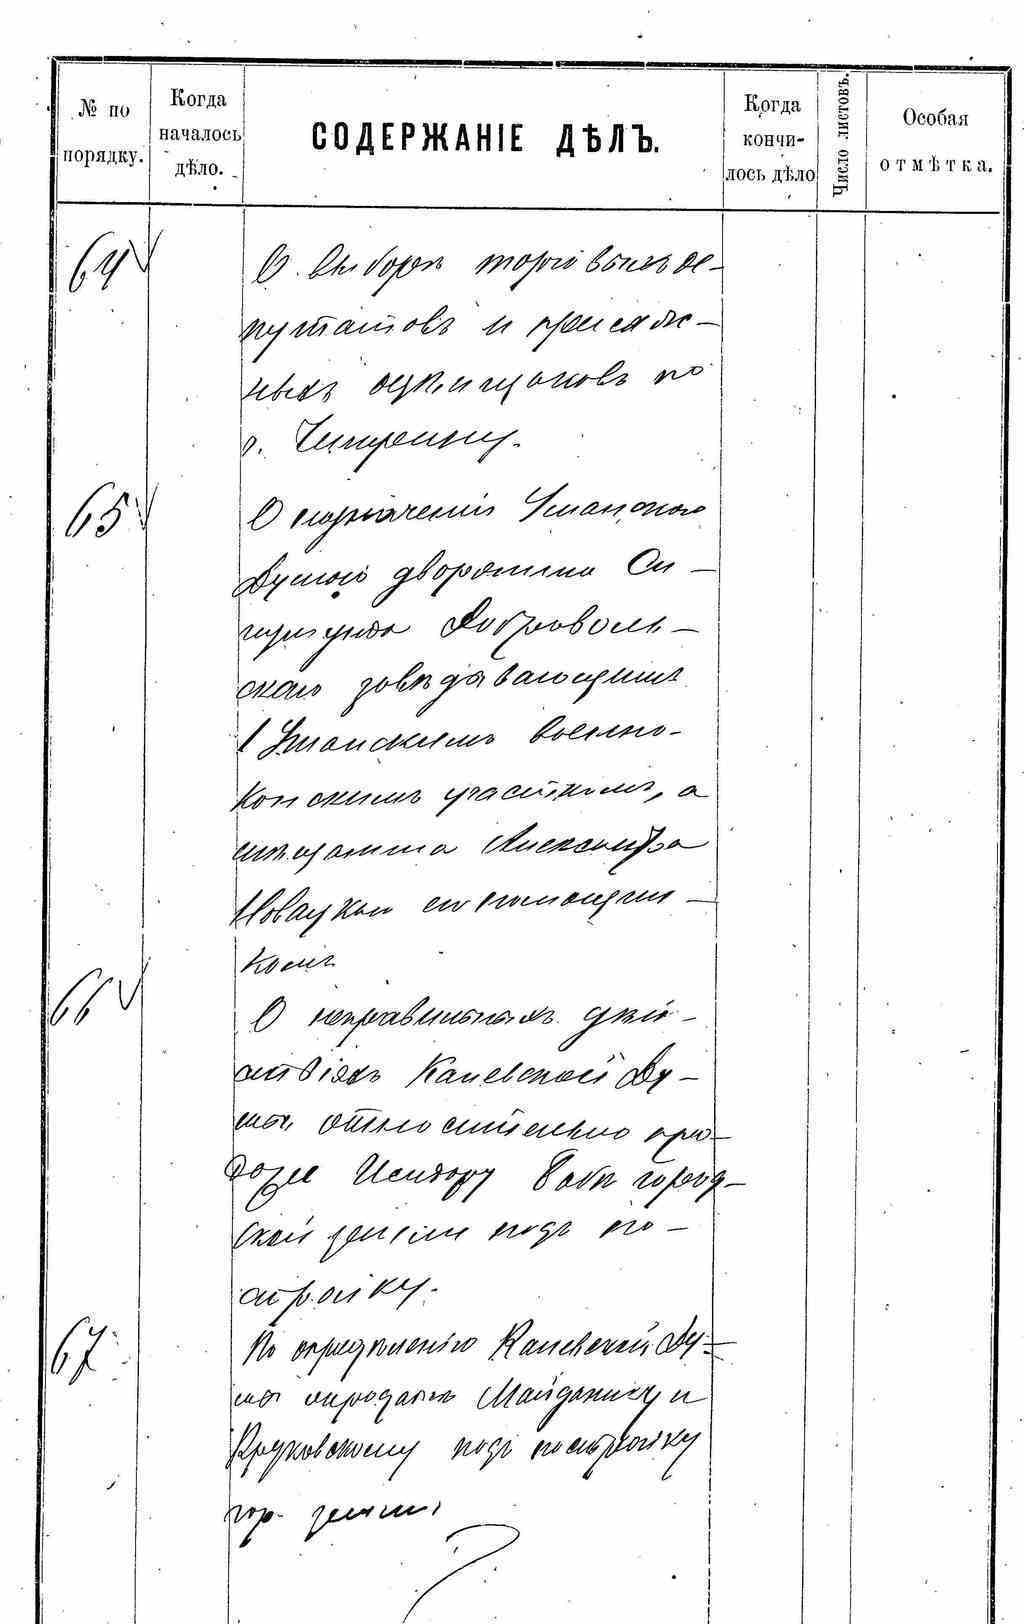 № по порядку.
Когда началось дѣло.
СОДЕРЖАНІЕ ДѢЛЪ.
Когда кончи-лось дѣло
Число листовъ.
Особая отмѣтка.
64
О выборѣ торговыхъ де-
путатовъ и присяж-
ныхъ оцѣнщиковъ по
г. Чигирину.
65
О назначеніи Уманскою
Думою дворянина Си-
гизмунда Доброволь-
скаго завѣдывающимъ
1 Уманскимъ военно-
конскимъ участкомъ, а
мѣщанина Александра
Новацкаго его помощни-
комъ
66
О неправильныхъ дѣй-
ствіяхъ Каневской Ду-
мы относительно про-
дажи Исидору Бабѣ город-
ской земли подъ по-
стройку.
67
По опредѣленію Каневской Ду-
мы о продажѣ Майданику и
Круковскому подъ постройку
гор. земли